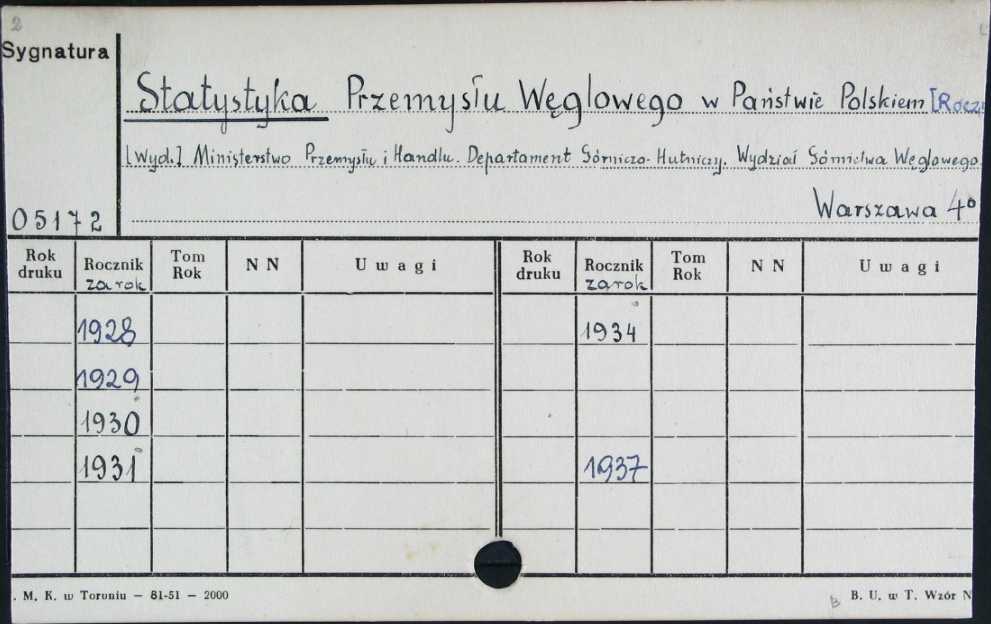 2
Sygnatura
Statystyka Przemysłu Węglowego w Państwie Polskiem [Rocz
[Wyd.] Ministerstwo Przemysłu i Handlu. Departament Górniczo-Hutniczy. Wydział Górnictwa Węglowego.
05172
Warszawa 4°
Rok druku Rocznik za rok Tom Rok N N Uwagi Rok druku Rocznik za rok Tom Rok N N Uwagi
1928 1934
1929
1930
1931 1937
. M. K. w Toruniu — 81-51 — 2000
B B. U. w T. Wzór N